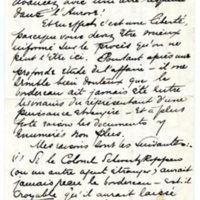 avancés, avec une
dans "l'Aurore".
Et en effet c'est une liberté,
parceque vous devez être mieux
informé sur le procès qu'on ne
peut l'être ici. Pourtant après une
profonde étude de l'affaire il me
semble bien douteux que le
bordereau ait jamais été entre
les mains du représentant d'une
puissance étrangère. Et à plus
forte raison les documents y
énumérés non plus.
Mes raisons sont les suivantes:
(1) Si le Colonel Schwartzkoppen
(ou un autre agent étranger) avait
jamais reçu le bordereau - est-il
croyable qu'il aurait laissé